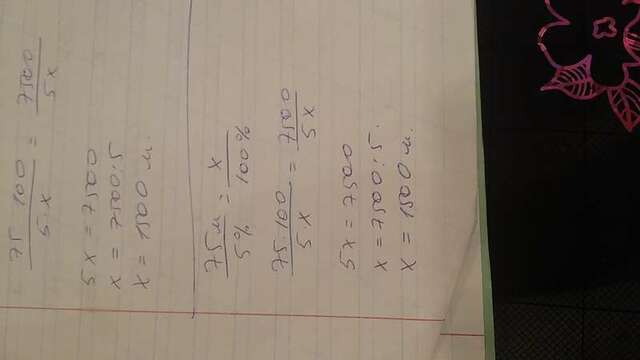 75 100 / 5 · x = 7500 / 5 x
5x = 7500
x = 7500 : 5
x = 1500 м.
75 м / 5% = x / 100%
75 · 100 / 5 · x = 7500 / 5 x
5x = 7500
x = 7500 : 5.
x = 1500 м.